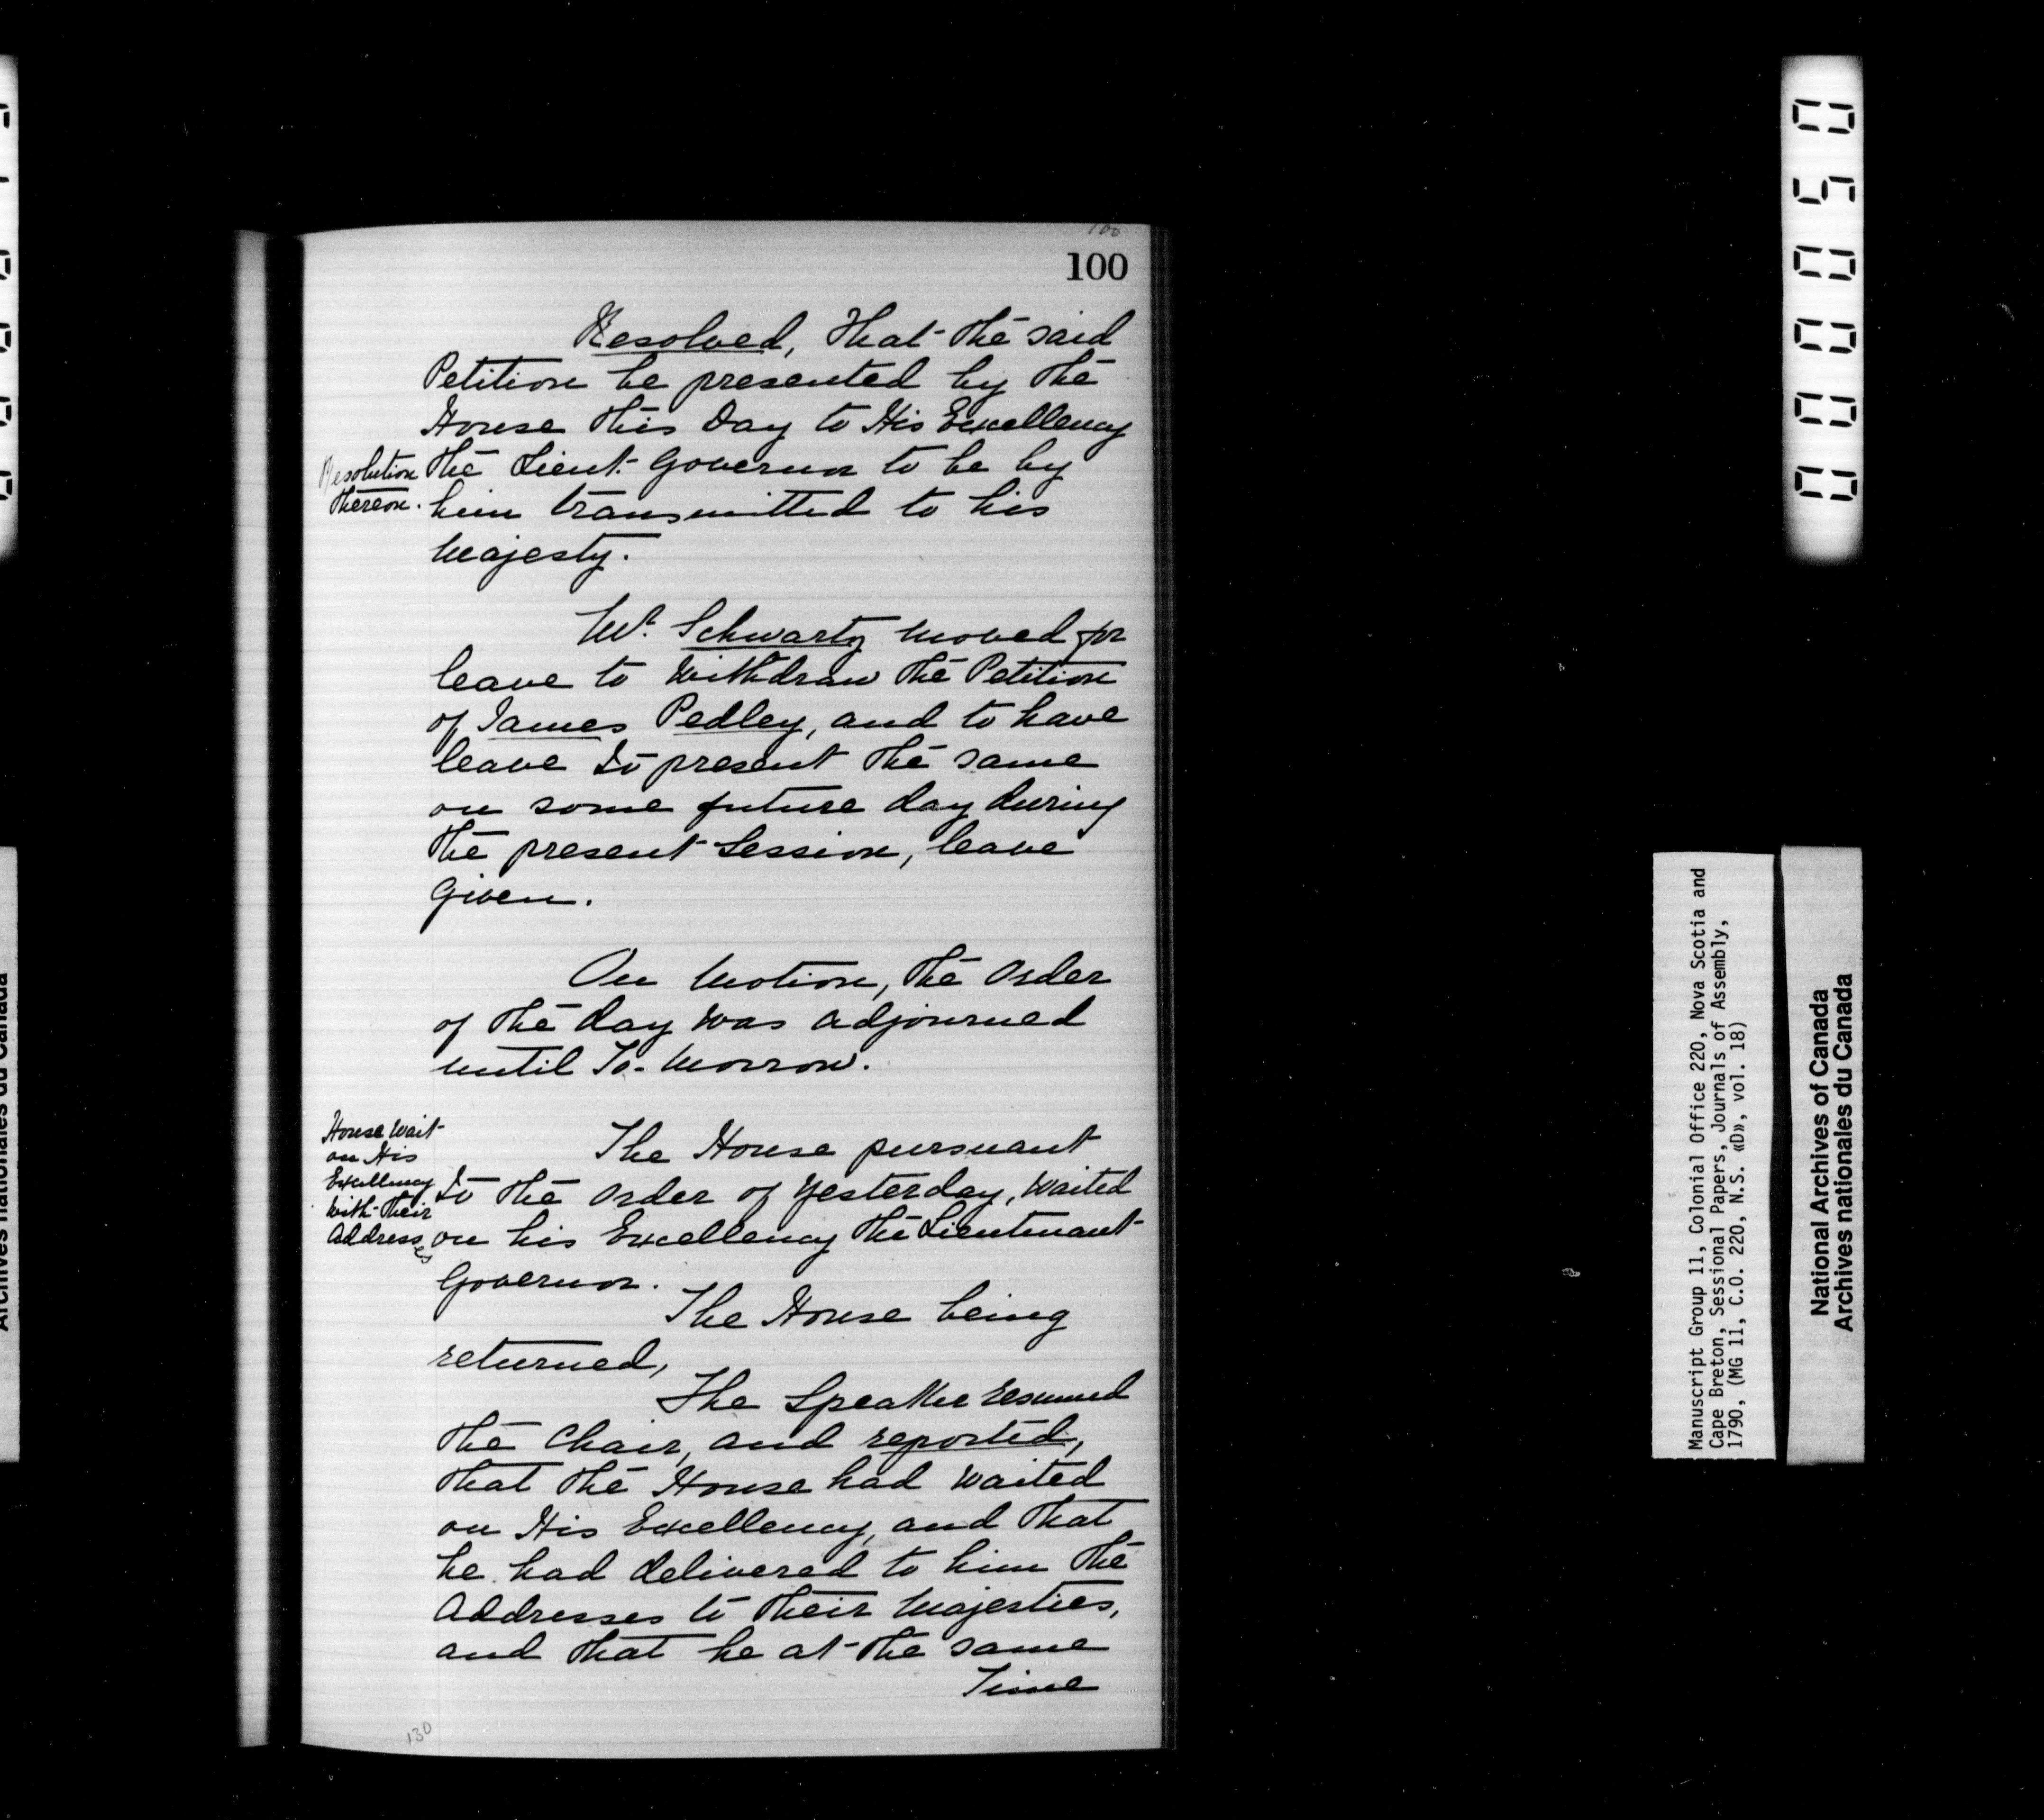 100
100
Resolved, That the said
Petition be presented by the
House this Day to His Excellency
Resolution
thereon.
the Lieut. Governor to be by
him transmitted to his
Majesty.
Mr. Schwartz moved for
leave to withdraw the Petition
of James Pedley, and to have
leave to present the same
on some future day during
the present Session, leave
given.
On Motion, the Order
of the day was adjourned
until To-Morrow.
House Wait
on His
Excellency
with their
Addresses
The House pursuant
to the Order of Yesterday, Waited
on his Excellency the Lieutenant
Governor.
The House being
returned,
The Speaker resumed
the Chair, and reported,
that the House had waited
on His Excellency, and that
he had delivered to him the
Addresses to their Majesties,
and that he at the same
Time
130
000050
Manuscript Group 11, Colonial Office 220, Nova Scotia and
Cape Breton, Sessional Papers, Journals of Assembly,
1790, (MG 11, C.O. 220, N.S. «D», vol. 18)
National Archives of Canada
Archives nationales du Canada
Archives nationales du Canada